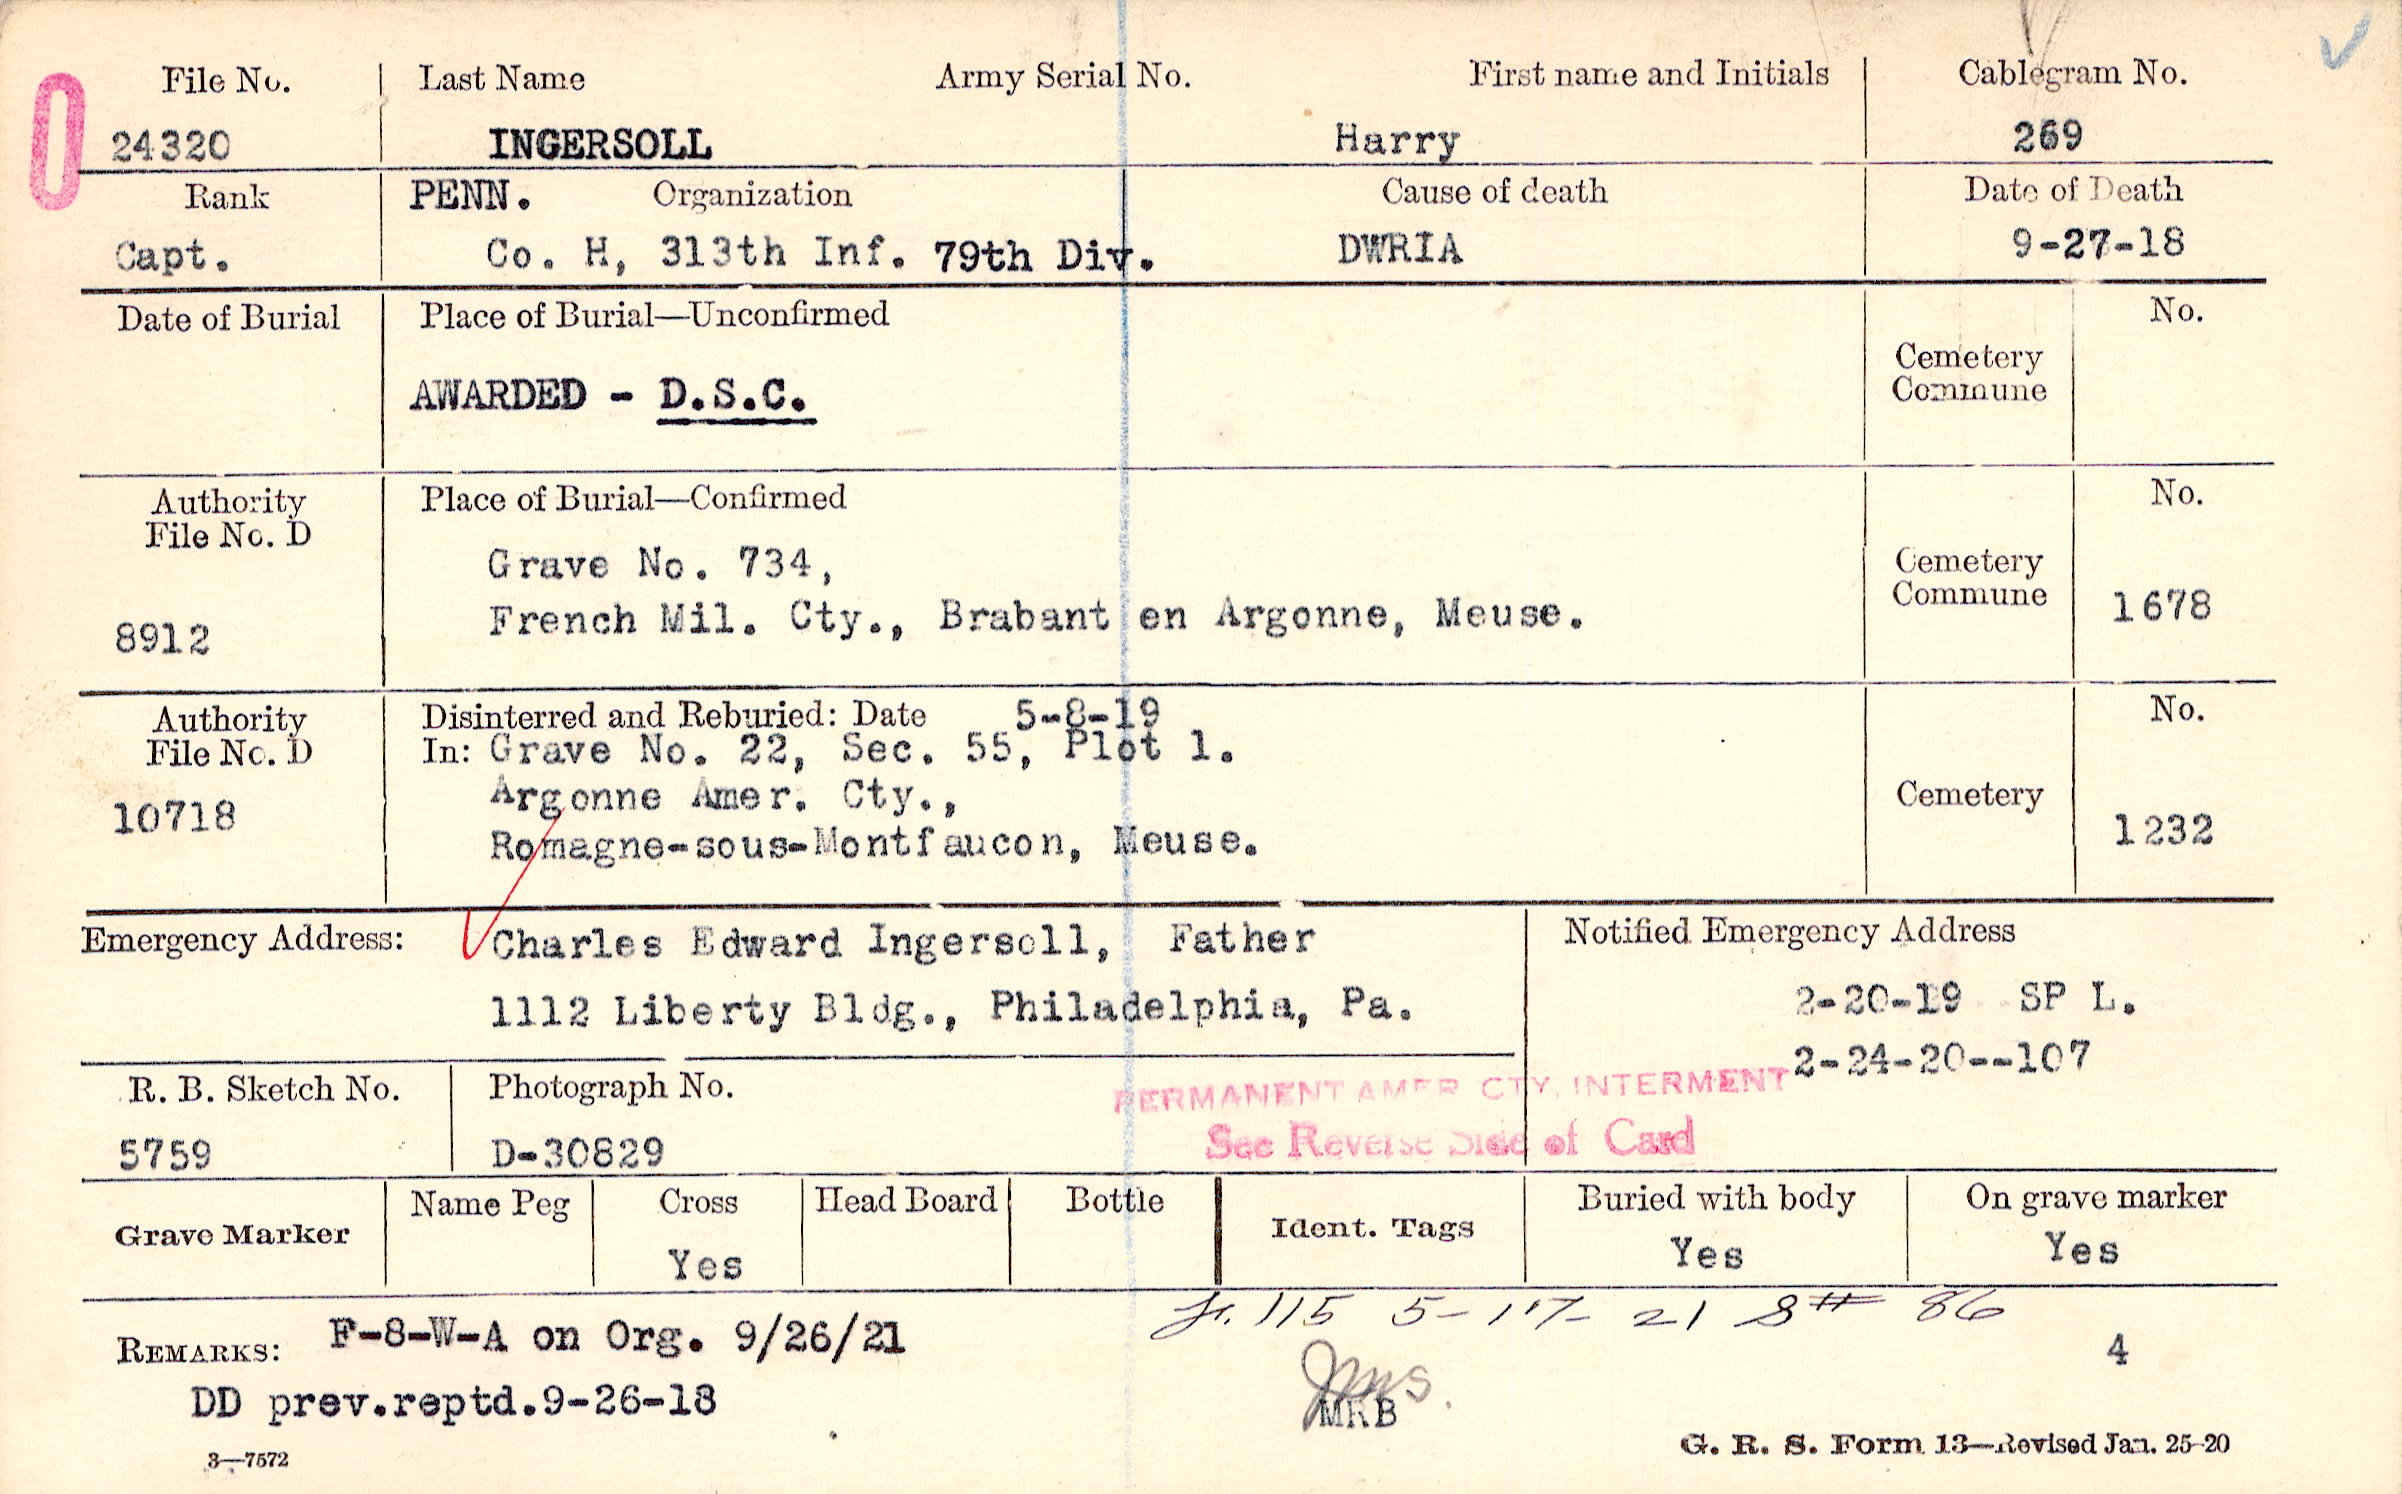 File No. Last Name Army Serial No. First name and Initials Cablegram No.
24320 INGERSOLL Harry 269
Rank PENN. Organization Cause of death Date of Death
Capt. Co. H, 313th Inf. 79th Div. DWRIA 9-27-18
Date of Burial Place of Burial—Unconfirmed No.
Cemetery
Commune
AWARDED - D.S.C.
Authority Place of Burial—Confirmed No.
File No. D
Grave No. 734, Cemetery
Commune
French Mil. Cty., Brabant en Argonne, Meuse. 1678
8912
Authority Disinterred and Reburied: Date 5-8-19 No.
File No. D In: Grave No. 22, Sec. 55, Plot 1.
Argonne Amer. Cty., Cemetery
10718
Romagne-sous-Montfaucon, Meuse. 1232
Emergency Address: Charles Edward Ingersoll, Father Notified Emergency Address
1112 Liberty Bldg., Philadelphia, Pa. 2-20-19 SP L.
2-24-20--107
R. B. Sketch No. Photograph No. PERMANENT AMER CTY. INTERMENT
See Reverse Side of Card
5759 D-30829
Grave Marker Name Peg Cross Head Board Bottle Ident. Tags Buried with body On grave marker
Yes Yes Yes
115 5-17-21 86
REMARKS: F-8-W-A on Org. 9/26/21 4
DD prev.reptd.9-26-18 MRB
3—7572 G. R. S. Form 13—Revised Jan. 25-20